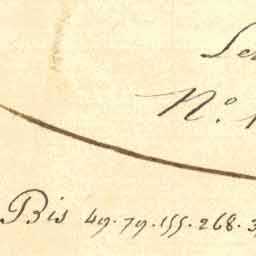 Se
N.º 1
Bis 49.79.155.268.3